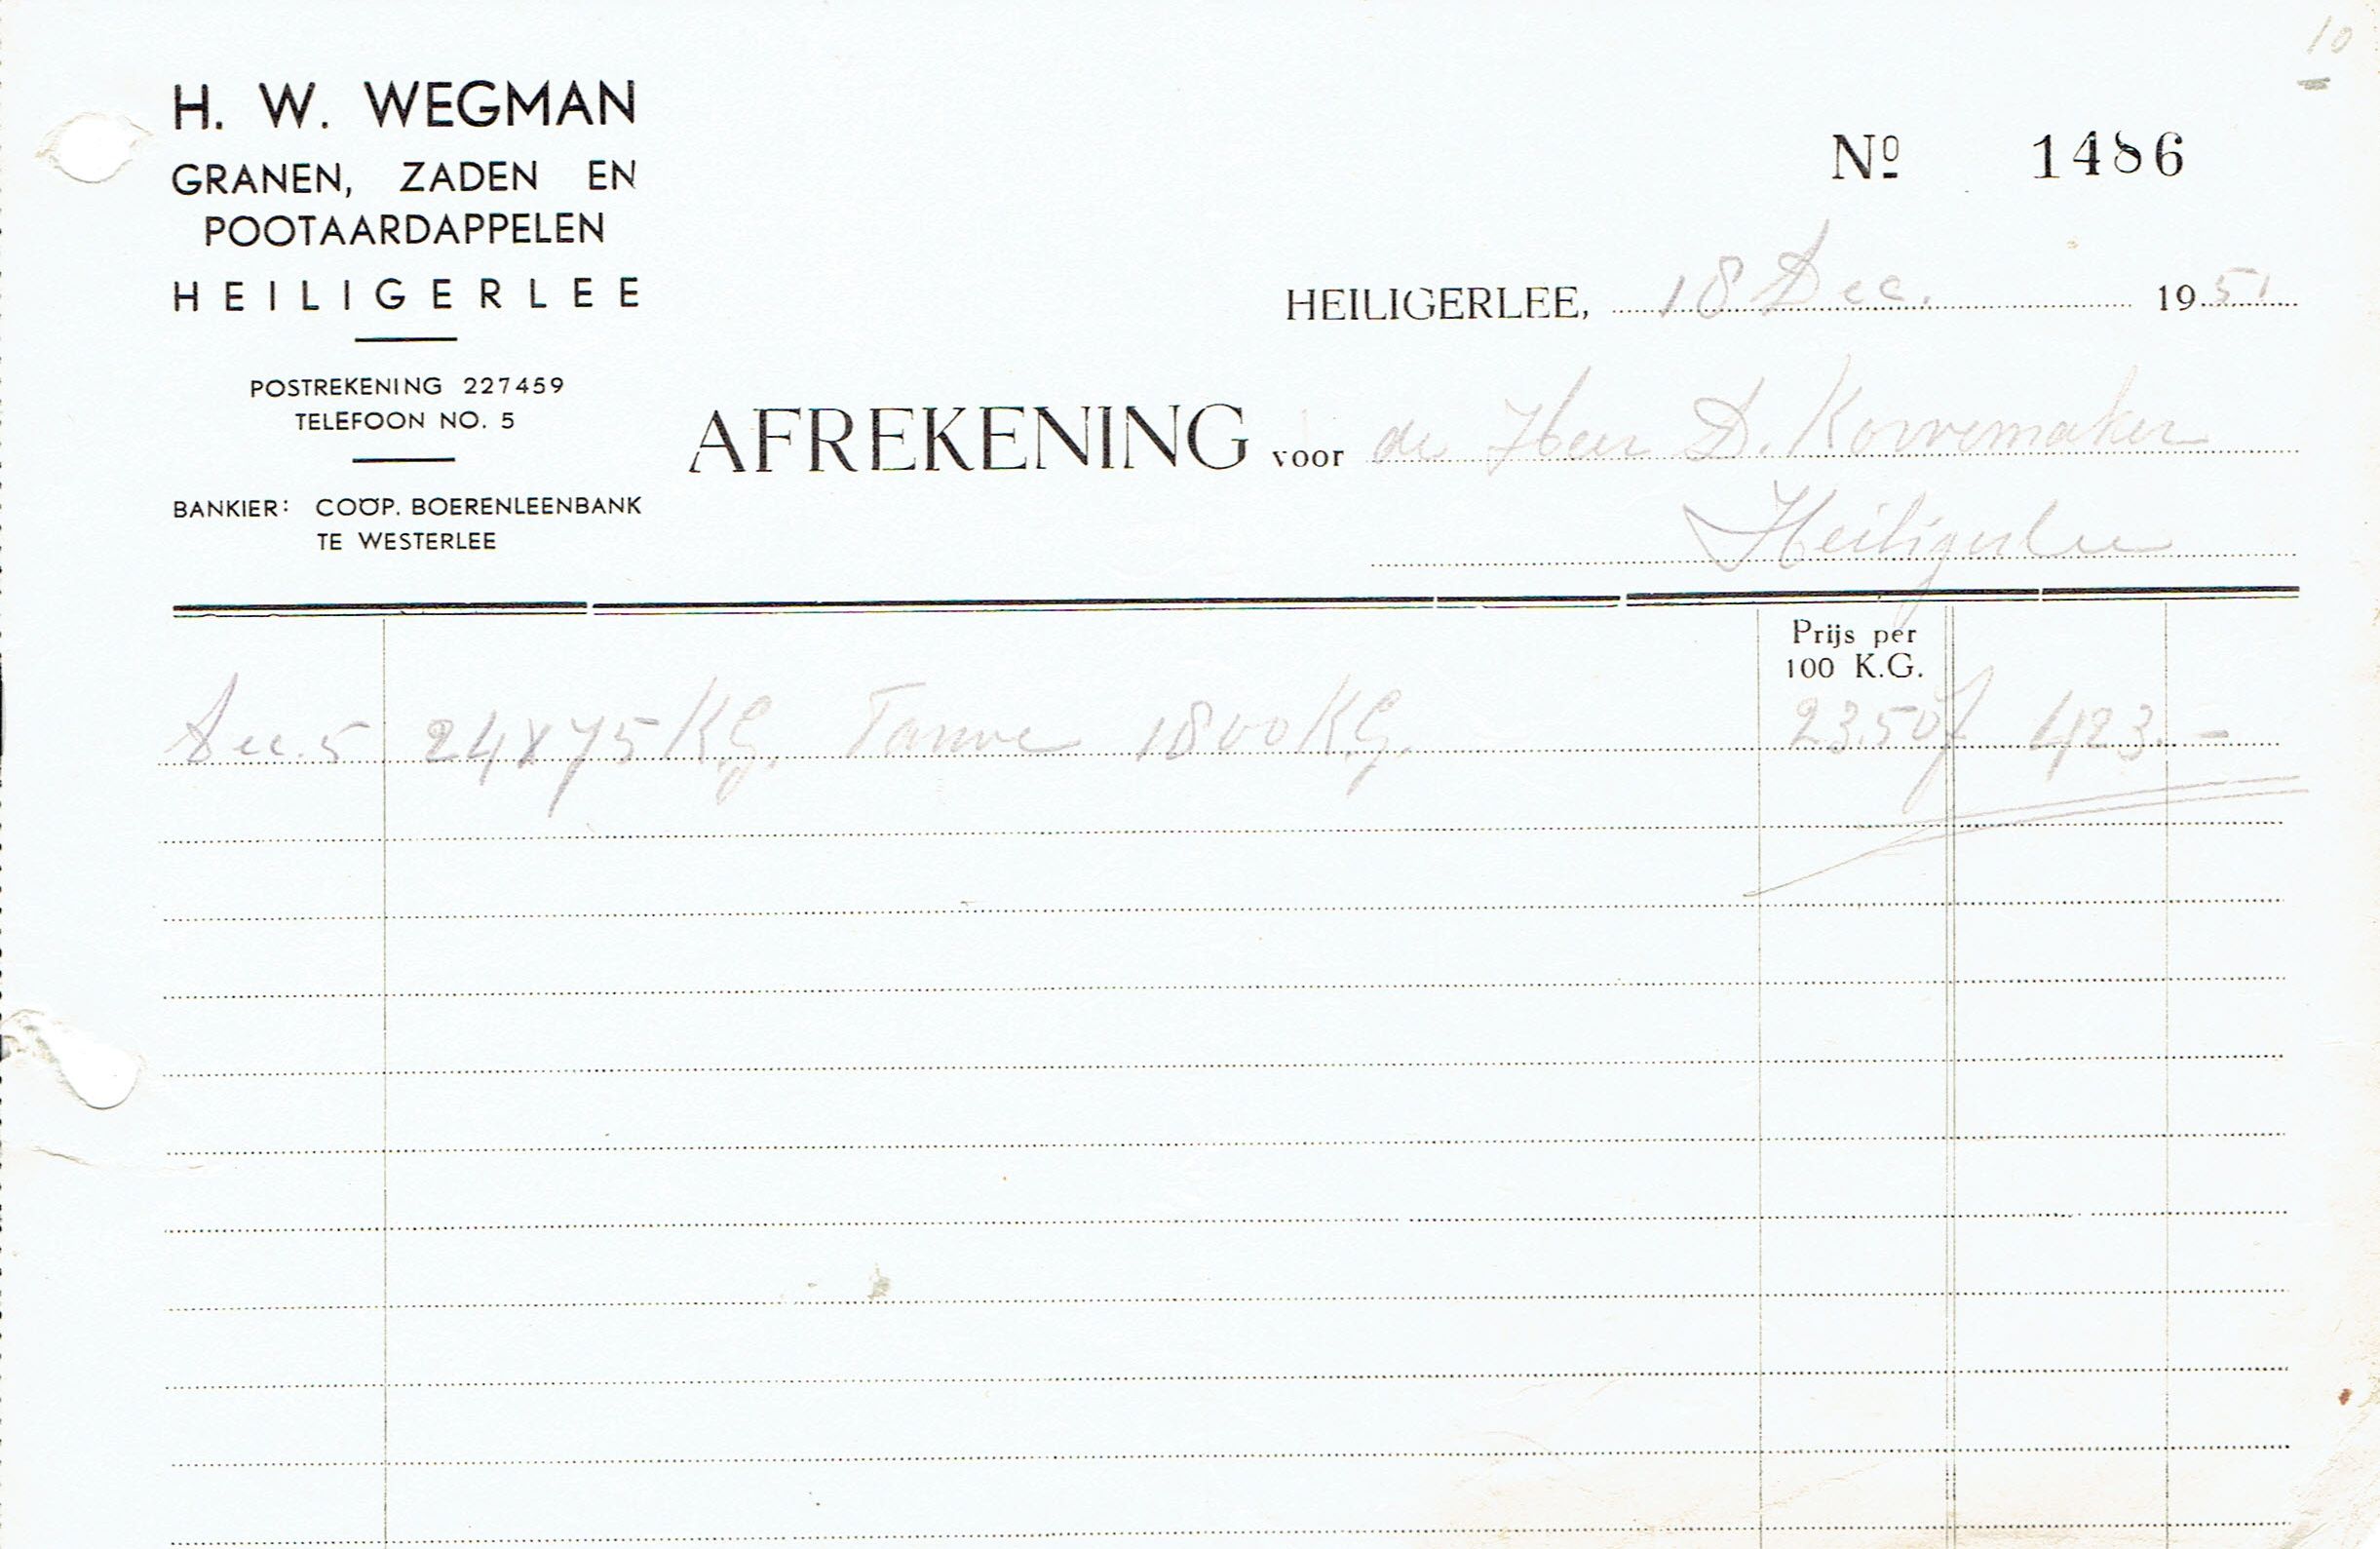 10
H. W. WEGMAN
GRANEN, ZADEN EN
POOTAARDAPPELEN
HEILIGERLEE
POSTREKENING 227459
TELEFOON NO. 5
BANKIER: COÖP. BOERENLEENBANK
TE WESTERLEE
Nº 1486
HEILIGERLEE, 18 Dec. 1951
AFREKENING voor de Heer D. Korvemaker
Heiligerlee
Prijs per
100 K.G.
Dec. 5 24 x 75 K.G. Tarwe 1800 K.G. 23.50 f 423.-